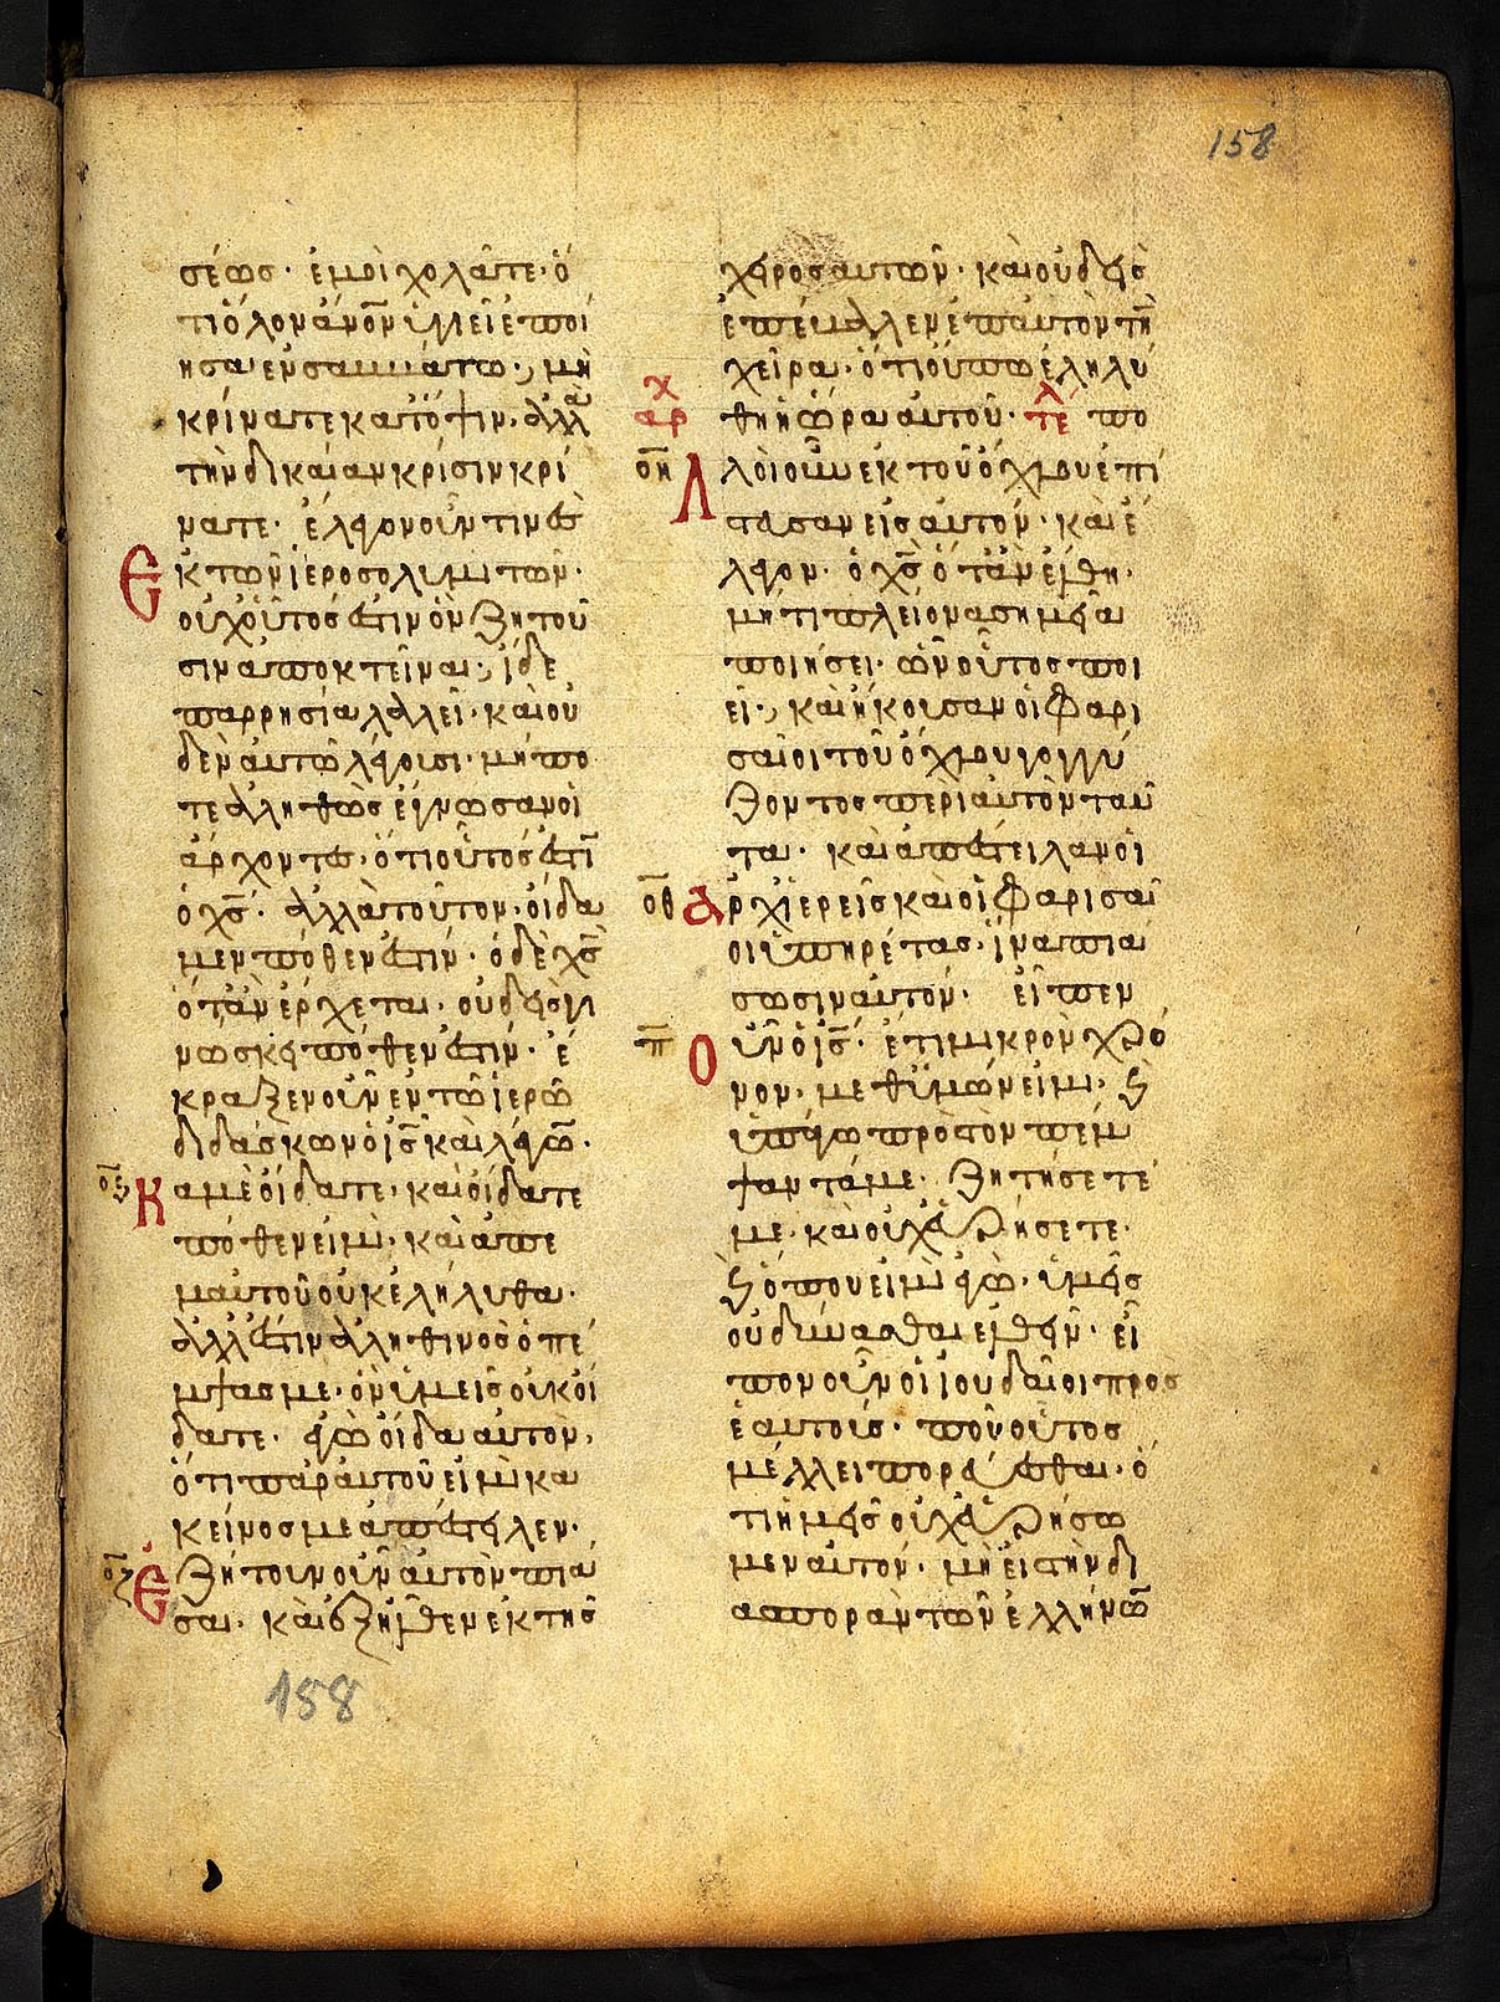 158
σέως· ἐμοὶ χολᾶτε· ὁ
τι ὅλον ἄνο̅ν ὑγιεῖ ἐποί
ησα ἐν σαμμάτω·, μὴ
κρίνατε κατ ὄψιν· ἀλλὰ
τὴν δικαίαν κρίσιν κρί
νατε· ἔλεγον οὖν τινὲς
ἐκ τῶν ἱεροσολυμιτῶν·
οὐχ οὗτος ἐστιν ὃν ζητοῦ
σιν ἀποκτεῖναι·, ἴδε
παρρησία λαλεῖ· καὶ οὐ
δὲν αὐτῶ λέγουσι· μήπο
τε ἀληθῶς ἔγνωσαν οἱ
ἄρχοντες· ὅτι οὗτός ἐστῑ
ὁ χς̅· ἀλλὰ τοῦτον· οἴδα
μεν πόθεν ἐστίν· ὁ δὲ χς̅
ὅταν ἔρχεται· οὐδεὶς γι
νώσκει πόθεν ἐστίν· ἔ
κραξεν οὖν ἐν τῶ ἱερῶ
διδάσκων ὁ ις̅ καὶ λέγω̅·
οϛ̅ Καμὲ οἴδατε· καὶ οἴδατε
πόθεν εἰμὶ· καὶ ἀπ ἐ
μαυτοῦ οὐκ ἐλήλυθα·
ἀλλ ἔστιν ἀληθινὸς ὁ πέ
μψας με· ὃν ὑμεῖς οὐκ οἴ
δατε· ἐγὼ οἶδα αὐτὸν·
ὅτι παρ αὐτοῦ εἰμὶ κα
κεῖνος με ἀπέστειλεν·
οζ̅ Ἐζήτουν οὖν αὐτὸν πιά
σαι· καὶ ἐξῆλθεν ἐκ τῆς
χειρὸς αὐτῶν· καὶ οὐδεὶς
ἐπέβαλλεν ἐπ αὐτὸν τὴ̅
χεῖρα· ὅτι οὔπω ἐληλύ
αρχ θη ἡ ὥρα αὐτοῦ· τελ πο
οη̅ Λλοὶ οὖν ἐκ τοῦ ὄχλου ἐπί
στευσαν εἰς αὐτόν· καὶ ἔ
λεγον· ὁ χς̅ ὅταν ἔλθη·
μήτι πλείονα σημεῖα
ποιήσει· ὧν οὗτος ποι
εῖ·, καὶ ἤκουσαν οἱ φαρι
σαῖοι τοῦ ὄχλου γογγύ
ζοντος περὶ αὐτὸν ταῦ
τα· καὶ ἀπέστειλαν οἱ
οθ̅ ἀρχιερεῖς καὶ οἱ φαρισαῖ
οι ὑπηρέτας· ἵνα πιά
σωσιν αὐτόν· εἶπεν
π̅ Οὖν ὁ ις̅· ἔτι μικρὸν χρό
νον· μεθ ὑμῶν εἰμι· ϗ
ὑπάγω πρὸς τὸν πέμ
ψαντά με· ζητήσετέ
με· καὶ οὐχ εὑρήσετε·
ϗ ὅπου εἰμὶ ἐγὼ· ὑμεῖς
οὐ δύνασθαι ἐλθεῖν· εἶ
πον οὖν οἱ ἰουδαῖοι πρὸς
ἑαυτοίς· ποῦ οὗτος
μέλλει πορεύεσθαι· ὅ
τι ἡμεῖς οὐχ εὑρήσω
μεν αὐτόν· μὴ εἰς τὴν δι
ασπορὰν τῶν ἑλλήνω̅
158